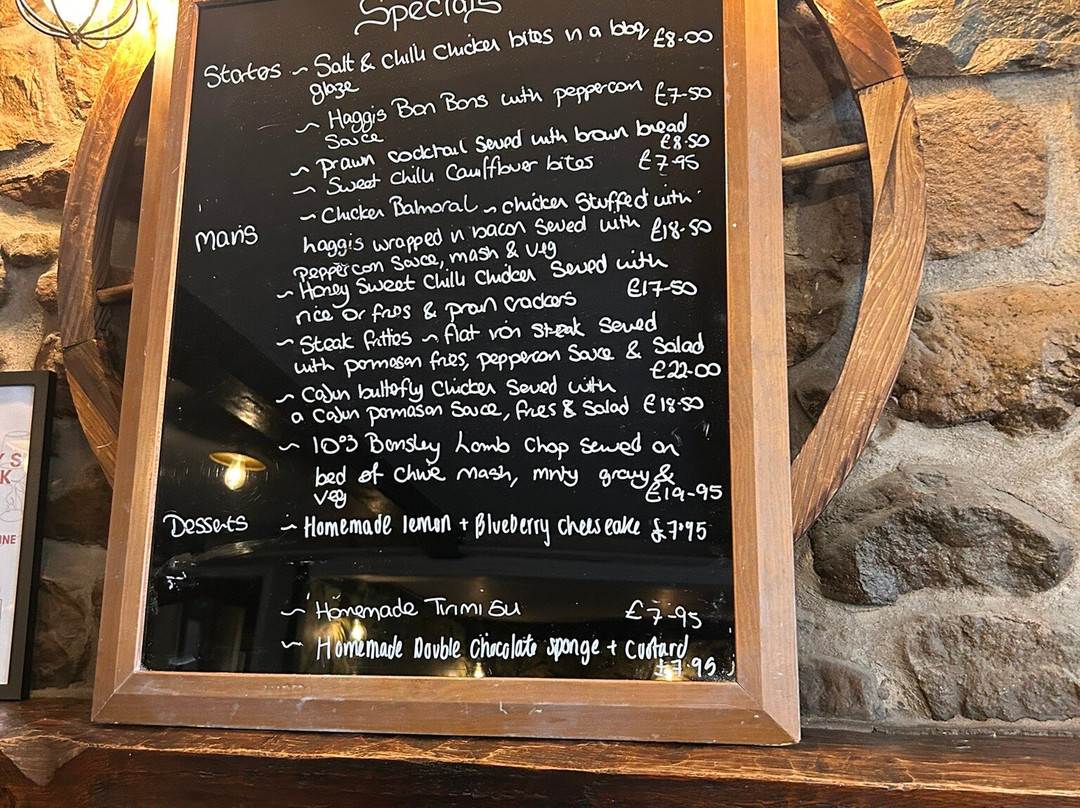 Specials
Starters ~ Salt & chilli chicken bites in a bbq £8.00
glaze
~ Haggis Bon Bons with peppercorn £7-50
Sauce
~ prawn cocktail Served with brown bread
£8.50
~ Sweet Chilli Cauliflower bites £7.95
~ Chicken Balmoral ~ chicken Stuffed with
Mains
haggis wrapped in bacon served with £18.50
Peppercorn Sauce, mash & veg
~ Honey Sweet Chilli Chicken Served with
rice or fries & prawn crackers £17-50
~ Steak frittes ~ flat iron Steak Served
with parmesan fries, peppercorn Sauce & Salad
£22.00
~ Cajun butterfly Chicken Served with
a Cajun parmasan Sauce, fries & Salad £18.50
~ 10oz Barnsley Lamb Chop served on
bed of Chive Mash, minty gravy &
veg £19-95
Desserts ~ Homemade lemon + Blueberry cheesecake £7.95
~ Homemade Tirimi Su £7-95
~ Homemade Double Chocolate sponge + custard
£7.95